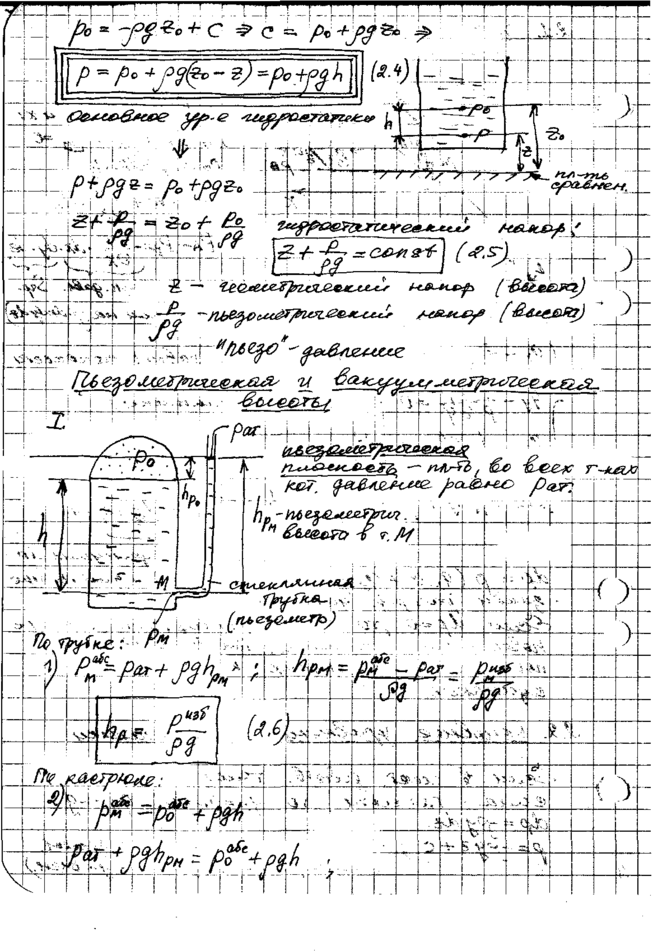 p₀ = -ρgz₀ + C ⇒ C = p₀ + ρgz₀ ⇒
p = p₀ + ρg(z₀ - z) = p₀ + ρgh (2.4)
основное ур-е гидростатики
⇓
h
p₀
p
z
z₀
пл-ть
сравнен.
p + ρgz = p₀ + ρgz₀
z + p/ρg = z₀ + p₀/ρg гидростатический напор:
z + p/ρg = const (2.5)
z - геометрический напор (высота)
p/ρg - пьезометрический напор (высота)
"пьезо" - давление
Пьезометрическая и вакуумметрическая
высоты
I
pат
p₀
hp₀
h
M
pм
пьезометрическая
плоскость - пл-ть, во всех т-ках
кот. давление равно pат.
hpм - пьезометрич.
высота в т. М
стеклянная
трубка
(пьезометр)
По трубке:
1) pм^абс = pат + ρghpм ; hpм = (pм^абс - pат)/ρg = pм^изб/ρg
hp = p^изб/ρg (2.6)
По кастрюле:
2) pм^абс = p₀^абс + ρgh
pат + ρghpм = p₀^абс + ρgh ;